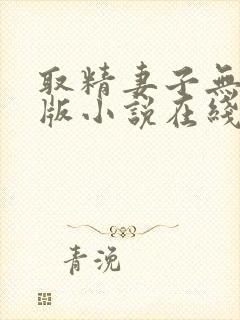 取精妻子無
版小說在綫
青浼